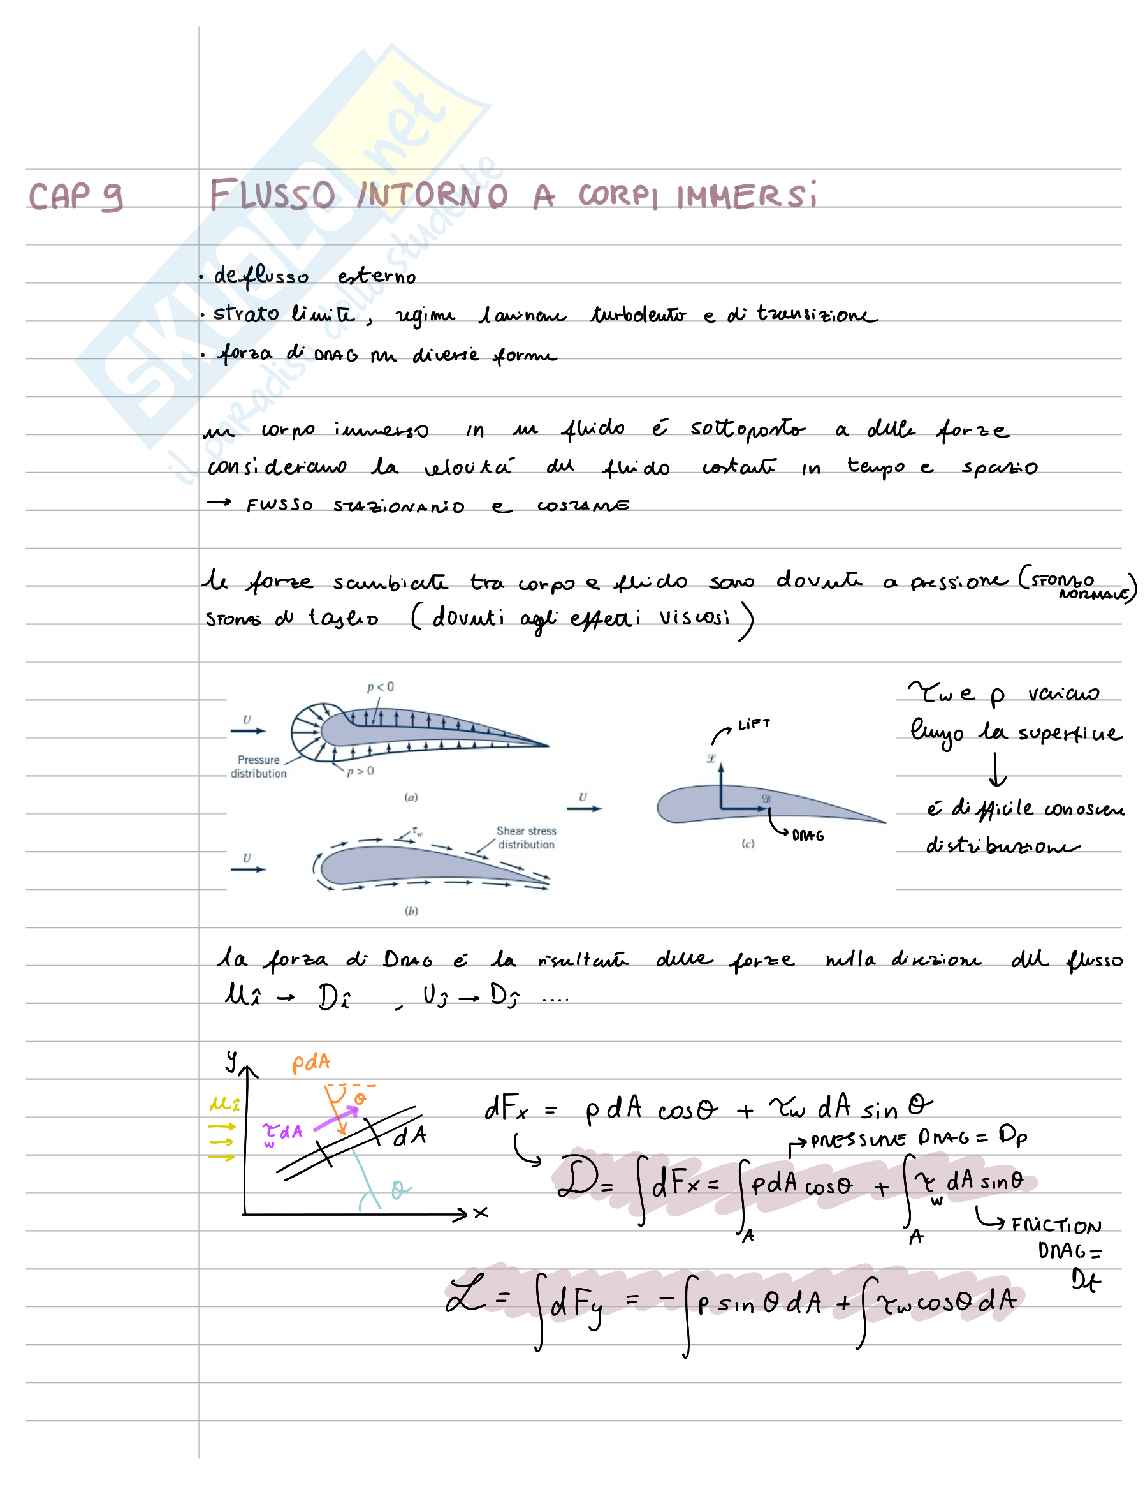 CAP 9 FLUSSO INTORNO A CORPI IMMERSI
• deflusso esterno
• strato limite, regime laminare turbolento e di transizione
• forza di DRAG su diverse forme
un corpo immerso in un fluido è sottoposto a delle forze
consideriamo la velocità del fluido costante in tempo e spazio
→ FLUSSO STAZIONARIO e COSTANTE
le forze scambiate tra corpo e fluido sono dovute a pressione (SFORZO NORMALE)
SFORZI di taglio (dovuti agli effetti viscosi)
p < 0
U
Pressure
distribution
p > 0
(a)
τw
Shear stress
distribution
U
(b)
LIFT
ℒ
U
𝒟
DRAG
(c)
τw e p variano
lungo la superficie
↓
è difficile conoscere
distribuzione
la forza di DRAG è la risultante delle forze nella direzione del flusso
U î → D î , U ĵ → D ĵ ....
y
pdA
θ
U î
τw dA
dA
θ
x
dFx = p dA cosθ + τw dA sin θ
→ PRESSURE DRAG = Dp
D = ∫ dFx = ∫A p dA cosθ + ∫A τw dA sinθ
→ FRICTION
DRAG =
Df
ℒ = ∫ dFy = - ∫ p sin θ dA + ∫ τw cosθ dA
SKUOLA.net
il paradiso dello studente